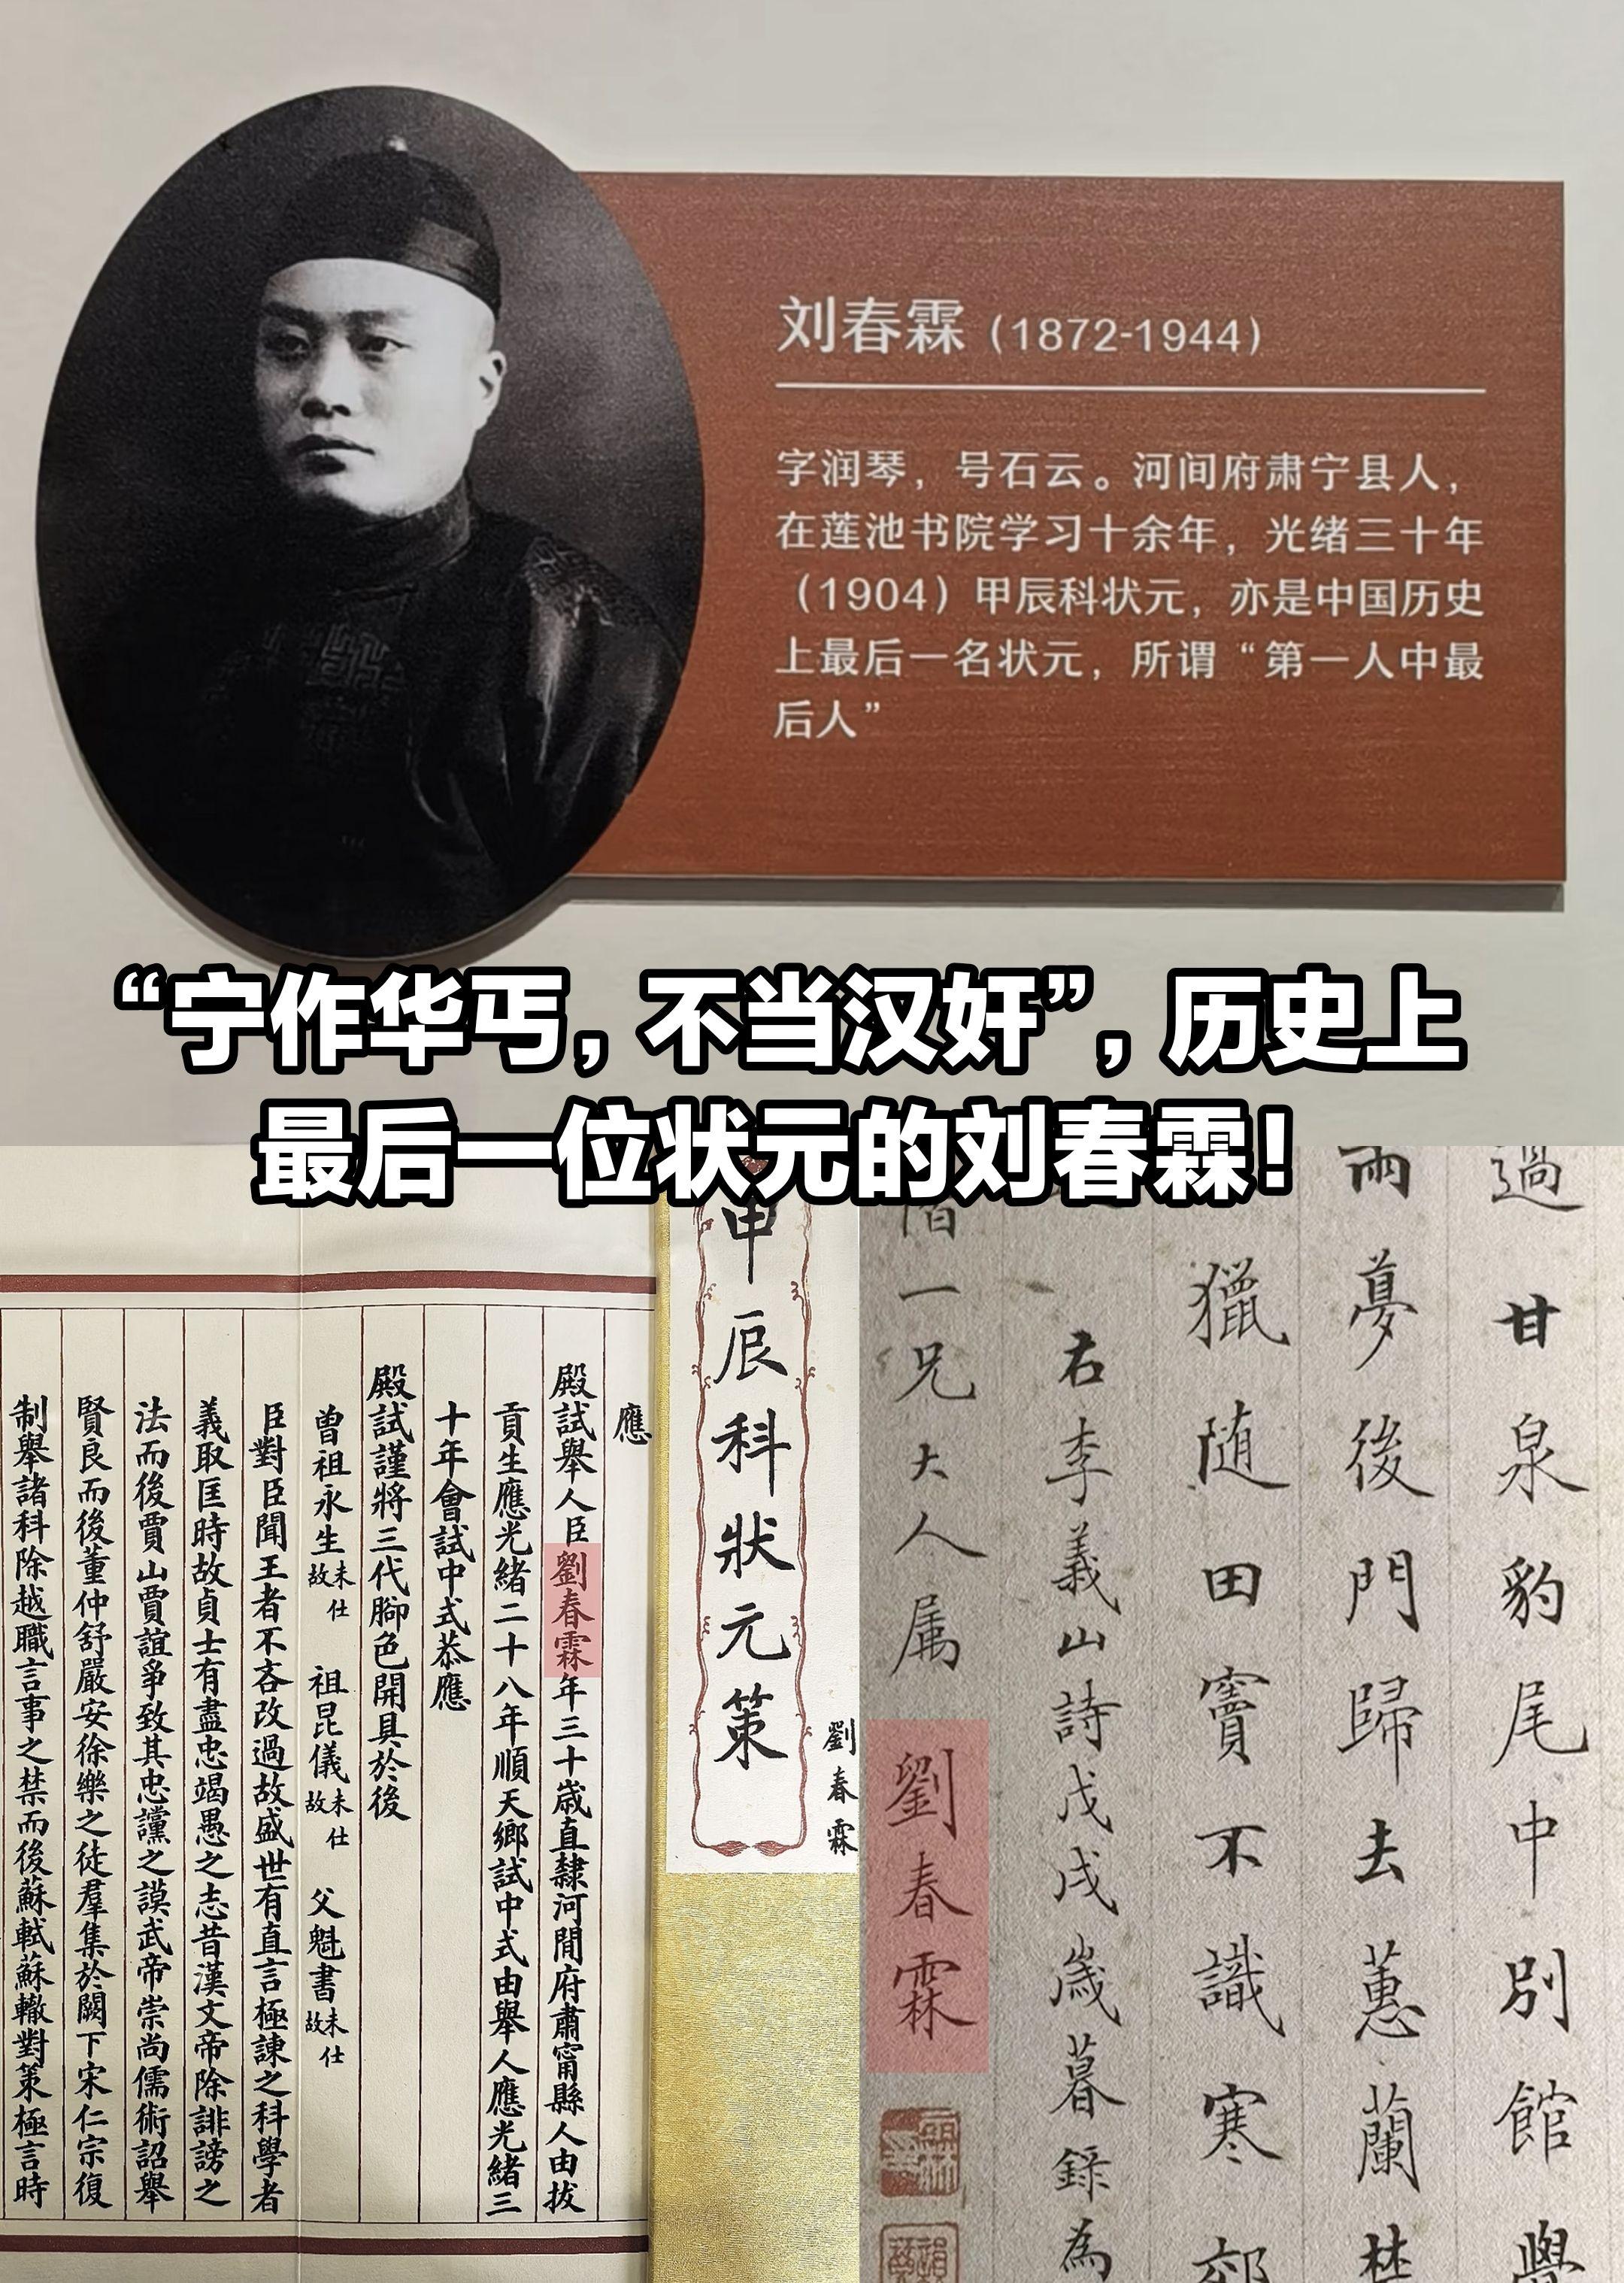 刘春霖（1872-1944）
字润琴，号石云。河间府肃宁县人，
在莲池书院学习十余年，光绪三十年
（1904）甲辰科状元，亦是中国历史
上最后一名状元，所谓“第一人中最
后人”
“宁作华丐，不当汉奸”，历史上
最后一位状元的刘春霖！
應
殿試舉人臣劉春霖年三十歲直隸河間府肅甯縣人由拔
貢生應光緒二十八年順天鄉試中式由舉人應光緒三
十年會試中式恭應
殿試謹將三代腳色開具於後
曾祖永生未仕故 祖昆儀未仕故 父魁書未仕故
臣對臣聞王者不吝改過故盛世有直言極諫之科學者
義取匡時故貞士有盡忠竭愚之志昔漢文帝除誹謗之
法而後賈山賈誼爭致其忠讜之謨武帝崇尚儒術詔舉
賢良而後董仲舒嚴安徐樂之徒羣集於闕下宋仁宗復
制舉諸科除越職言事之禁而後蘇軾蘇轍對策極言時
甲辰科狀元策
劉春霖
過甘泉豹尾中別館覺
雨夢後門歸去蕙蘭
獵随田竇不識寒郊
右李義山詩戊戌歲暮錄為
一兄大人属
劉春霖